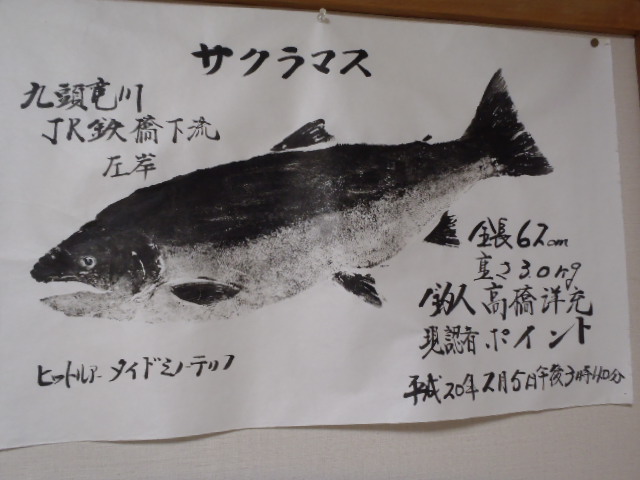 サクラマス
九頭竜川
JR鉄橋下流
左岸
全長62cm
重さ3.0kg
釣人 高橋洋充
現認者 ポイント
平成20年2月5日午後3時40分
ヒットルアー タイドミノーテリフ